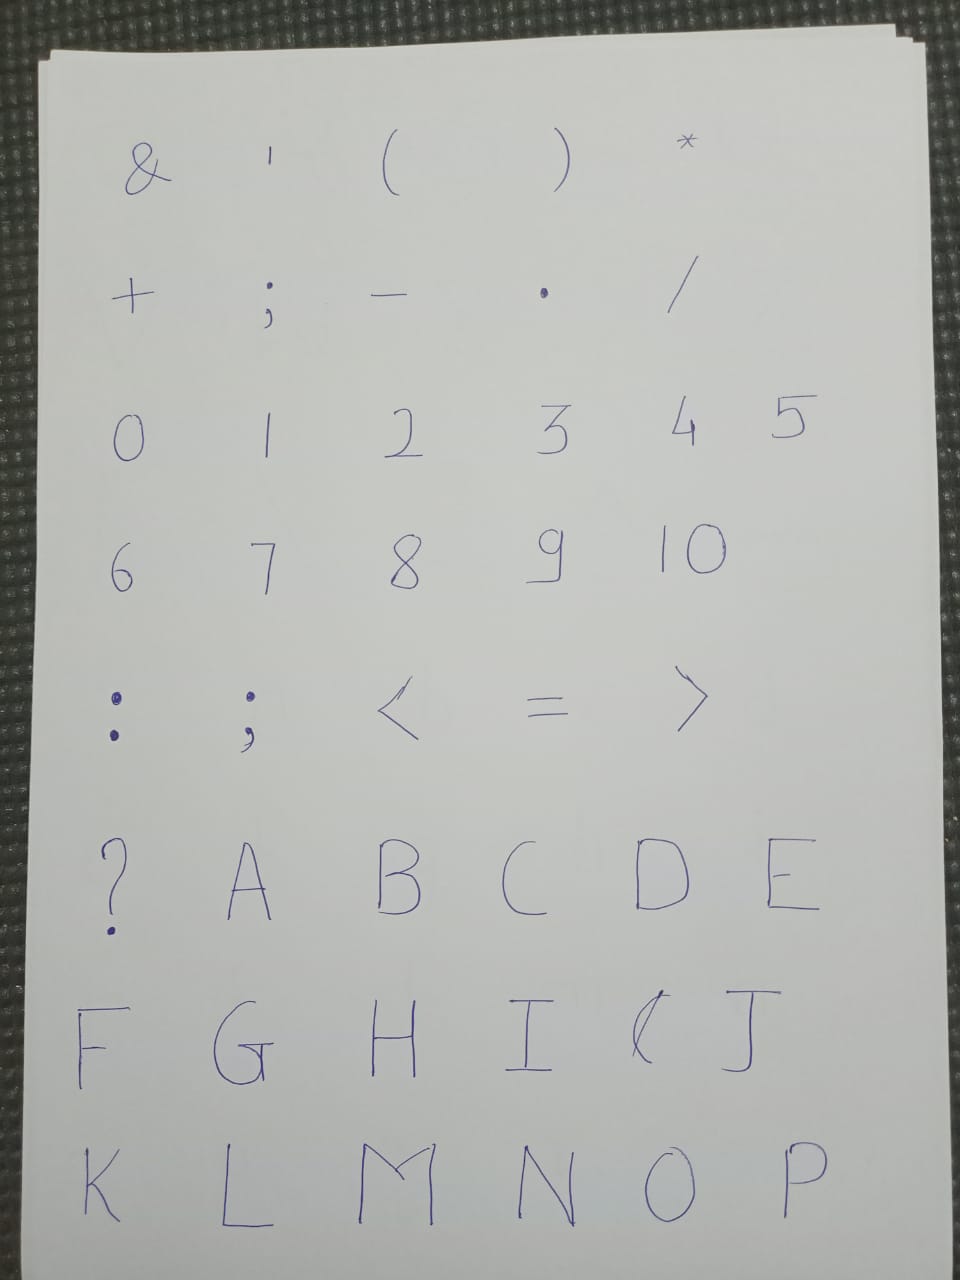 & ' ( ) *
+ ; - . /
0 1 2 3 4 5
6 7 8 9 10
: ; < = >
? A B C D E
F G H I J
K L M N O P